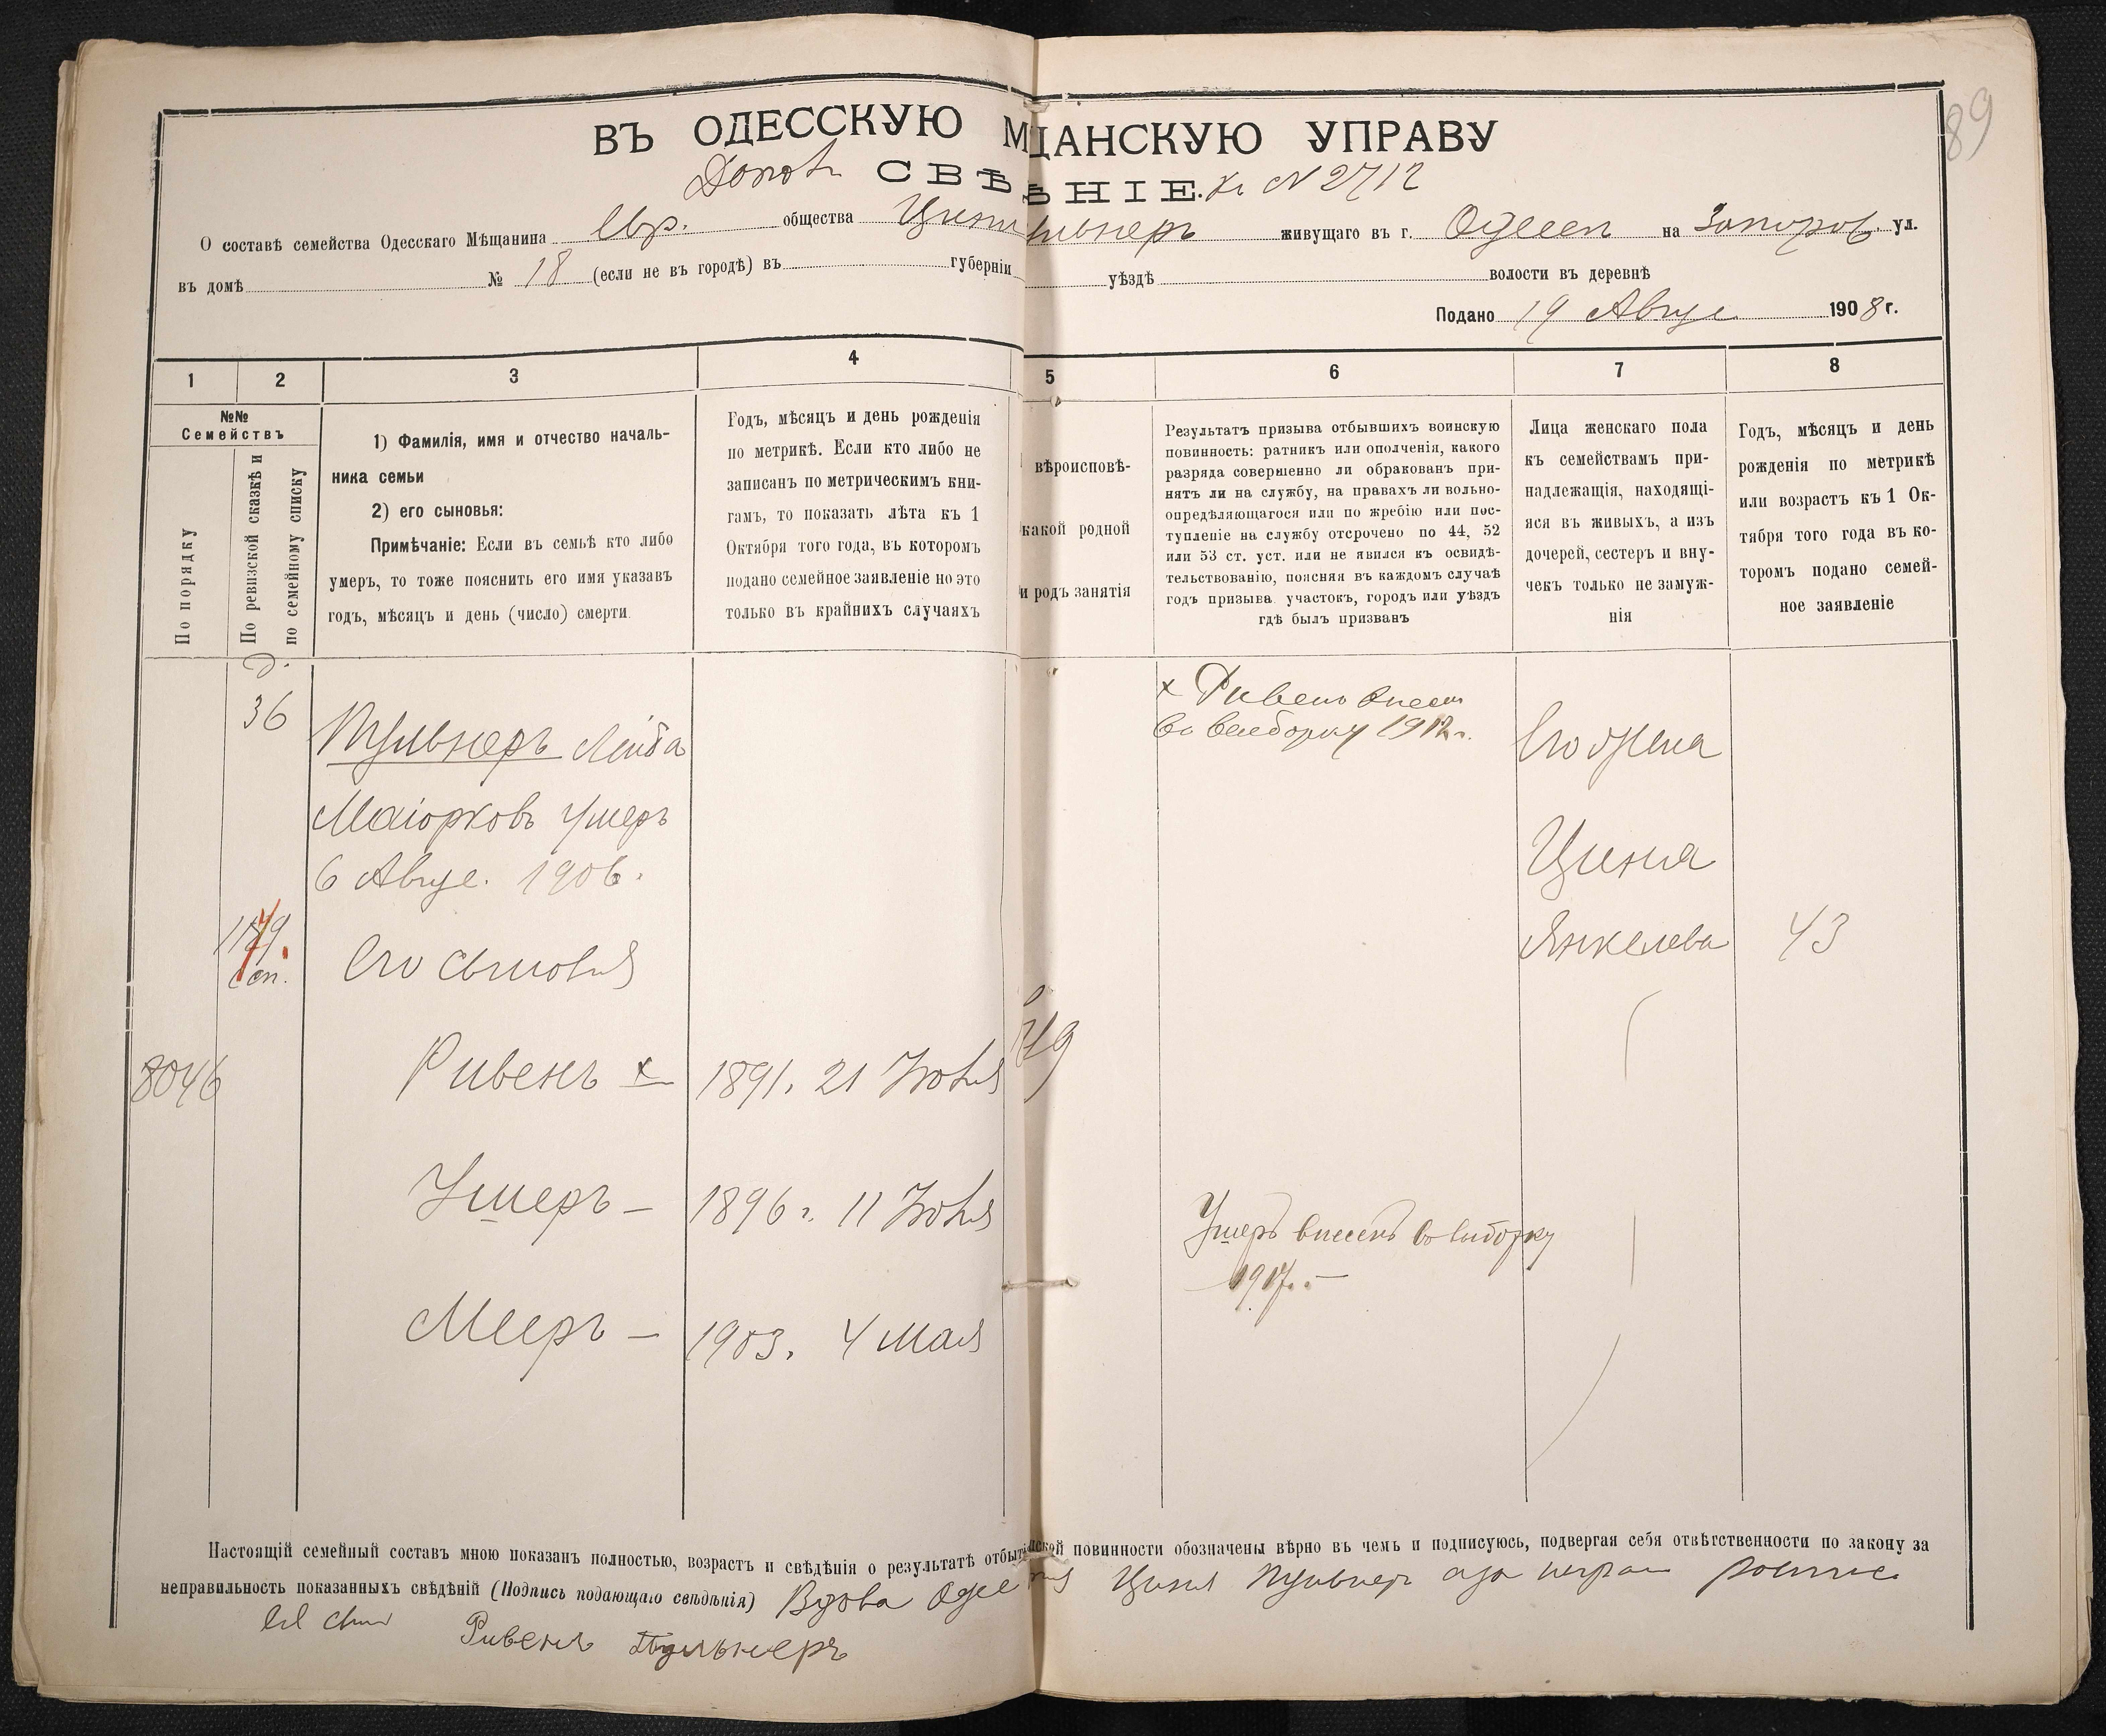 89
ВЪ ОДЕССКУЮ М ЩАНСКУЮ УПРАВУ
СВѢ ѢНІЕ. Къ N 2712
О составѣ семейства Одесскаго Мѣщанина Евр. общества Цини ульнеръ живущаго въ г. Одессѣ на Запоров. ул.
въ домѣ № 18 (если не въ городѣ) въ губерніи уѣздѣ волости въ деревнѣ
Подано 19 Авгус. 1908 г.
1 2 3 4 5 6 7 8
№№
Семействъ
По порядку
По ревизской сказкѣ и
по семейному списку
1) Фамилія, имя и отчество началь-
ника семьи
2) его сыновья:
Примѣчаніе: Если въ семьѣ кто либо
умеръ, то тоже пояснить его имя указавъ
годъ, мѣсяцъ и день (число) смерти.
Годъ, мѣсяцъ и день рожденія
по метрикѣ. Если кто либо не
записанъ по метрическимъ кни-
гамъ, то показать лѣта къ 1
Октября того года, въ которомъ
подано семейное заявленіе но это
только въ крайнихъ случаяхъ
вѣроисповѣ-
какой родной
и родъ занятія
Результатъ призыва отбывшихъ воинскую
повинность: ратникъ или ополченія, какого
разряда совершенно ли обракованъ при-
нятъ ли на службу, на правахъ ли вольно-
опредѣляющагося или по жребію или пос-
тупленіе на службу отсрочено по 44, 52
или 53 ст. уст. или не явился къ освидѣ-
тельствованію, поясняя въ каждомъ случаѣ
годъ призыва участокъ, городъ или уѣздъ
гдѣ былъ призванъ
Лица женскаго пола
къ семействамъ при-
надлежащія, находящі-
яся въ живыхъ, а изъ
дочерей, сестеръ и вну-
чекъ только не замуж-
нія
Годъ, мѣсяцъ и день
рожденія по метрикѣ
или возрастъ къ 1 Ок-
тября того года въ ко-
торомъ подано семей-
ное заявленіе
36
Пульнеръ Лейба
Маіорковъ Умеръ
6 Авгус. 1906.
Его сыновья
8046
Ривенъ х 1891. 21 Іюня
Ушеръ – 1896 г. 11 Іюня
Мееръ – 1903. 4 Мая
х Рувенъ внесен
во выборку 1912 г.
Ушеръ внесенъ во выборку
1917.. –
Его жена
Циня
Янкелева 43
Настоящій семейный составъ мною показанъ полностью, возрастъ и свѣдѣнія о результатѣ отбыті нской повинности обозначены вѣрно въ чемъ и подписуюсь, подвергая себя отвѣтственности по закону за
неправильность показанныхъ свѣдѣній (Подпись подающаго свѣдѣнія) Вдова Циня Пульнер
Ривенъ Пульнеръ